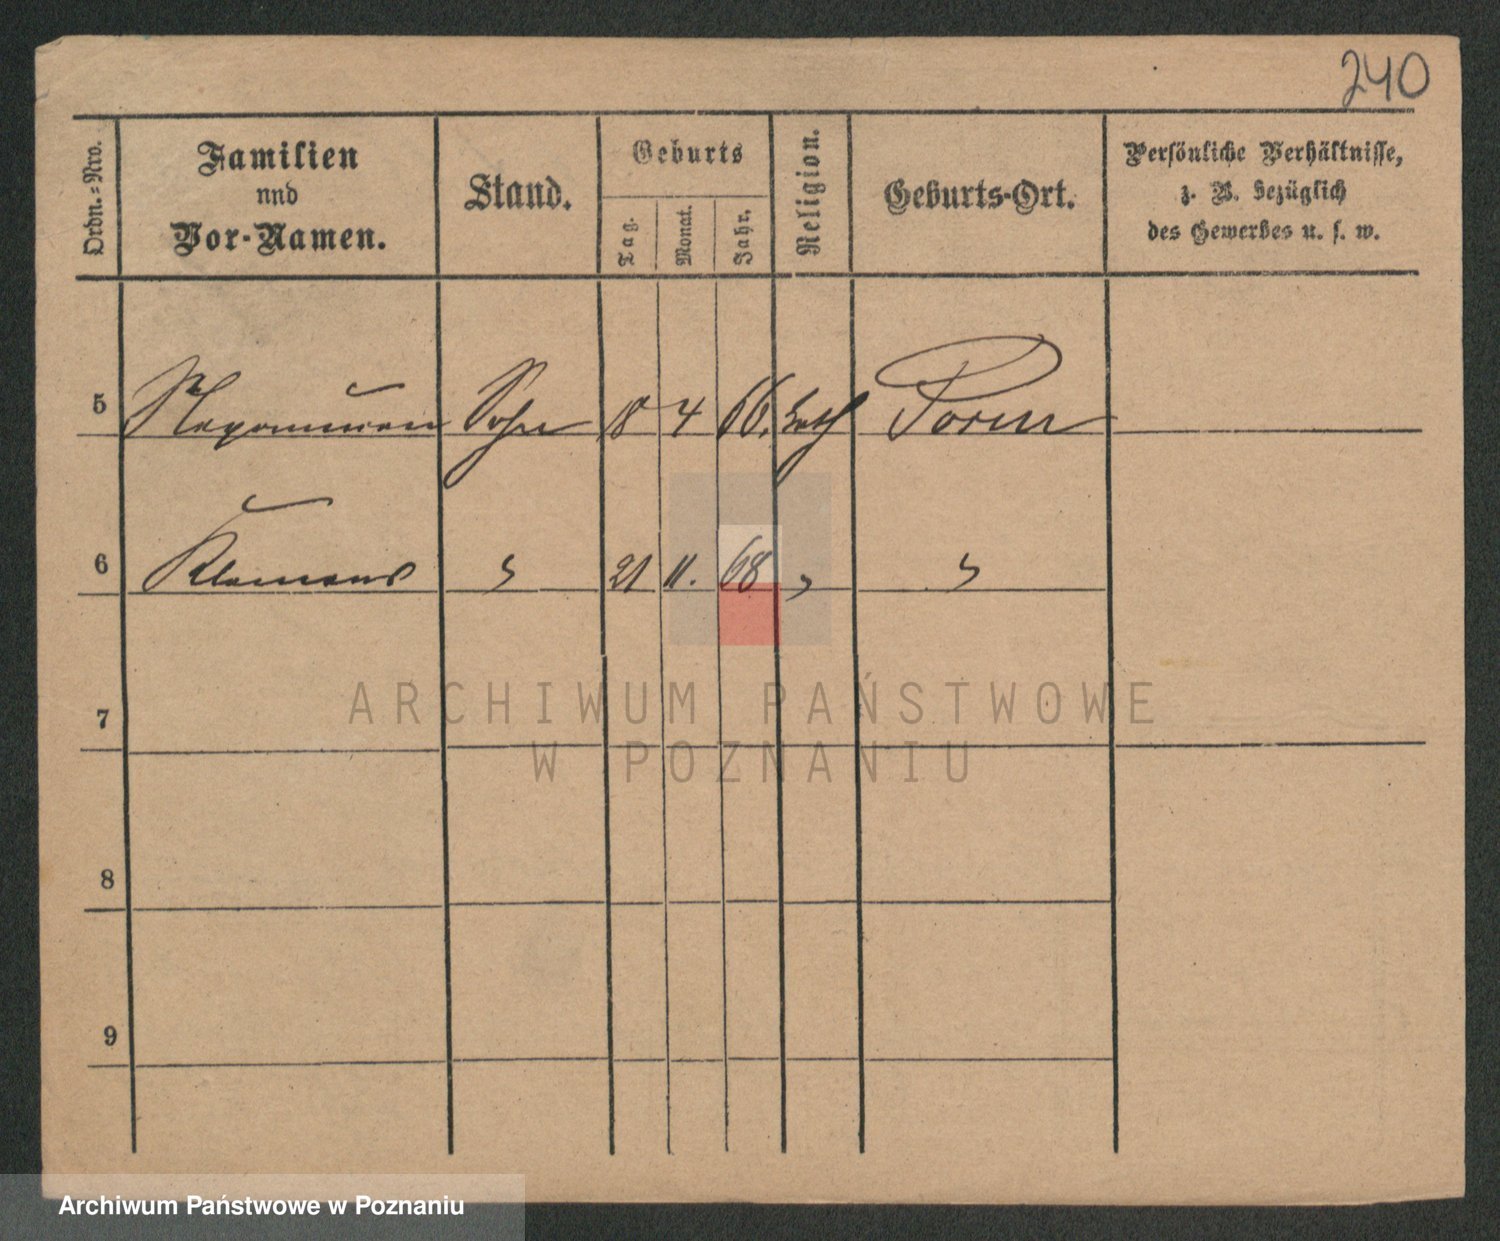 240
Ordn.-Nro.
Familien
und
Vor-Namen.
Stand.
Geburts
Tag.
Monat.
Jahr.
Religion.
Geburts-Ort.
Persönliche Verhältnisse,
z. B. bezüglich
des Gewerbes u. s. w.
5 Nepomucen Sohn 18 4 66. kath Posen
6 Klemens 21 11. 68
7
8
9
ARCHIWUM PAŃSTWOWE
W POZNANIU
Archiwum Państwowe w Poznaniu